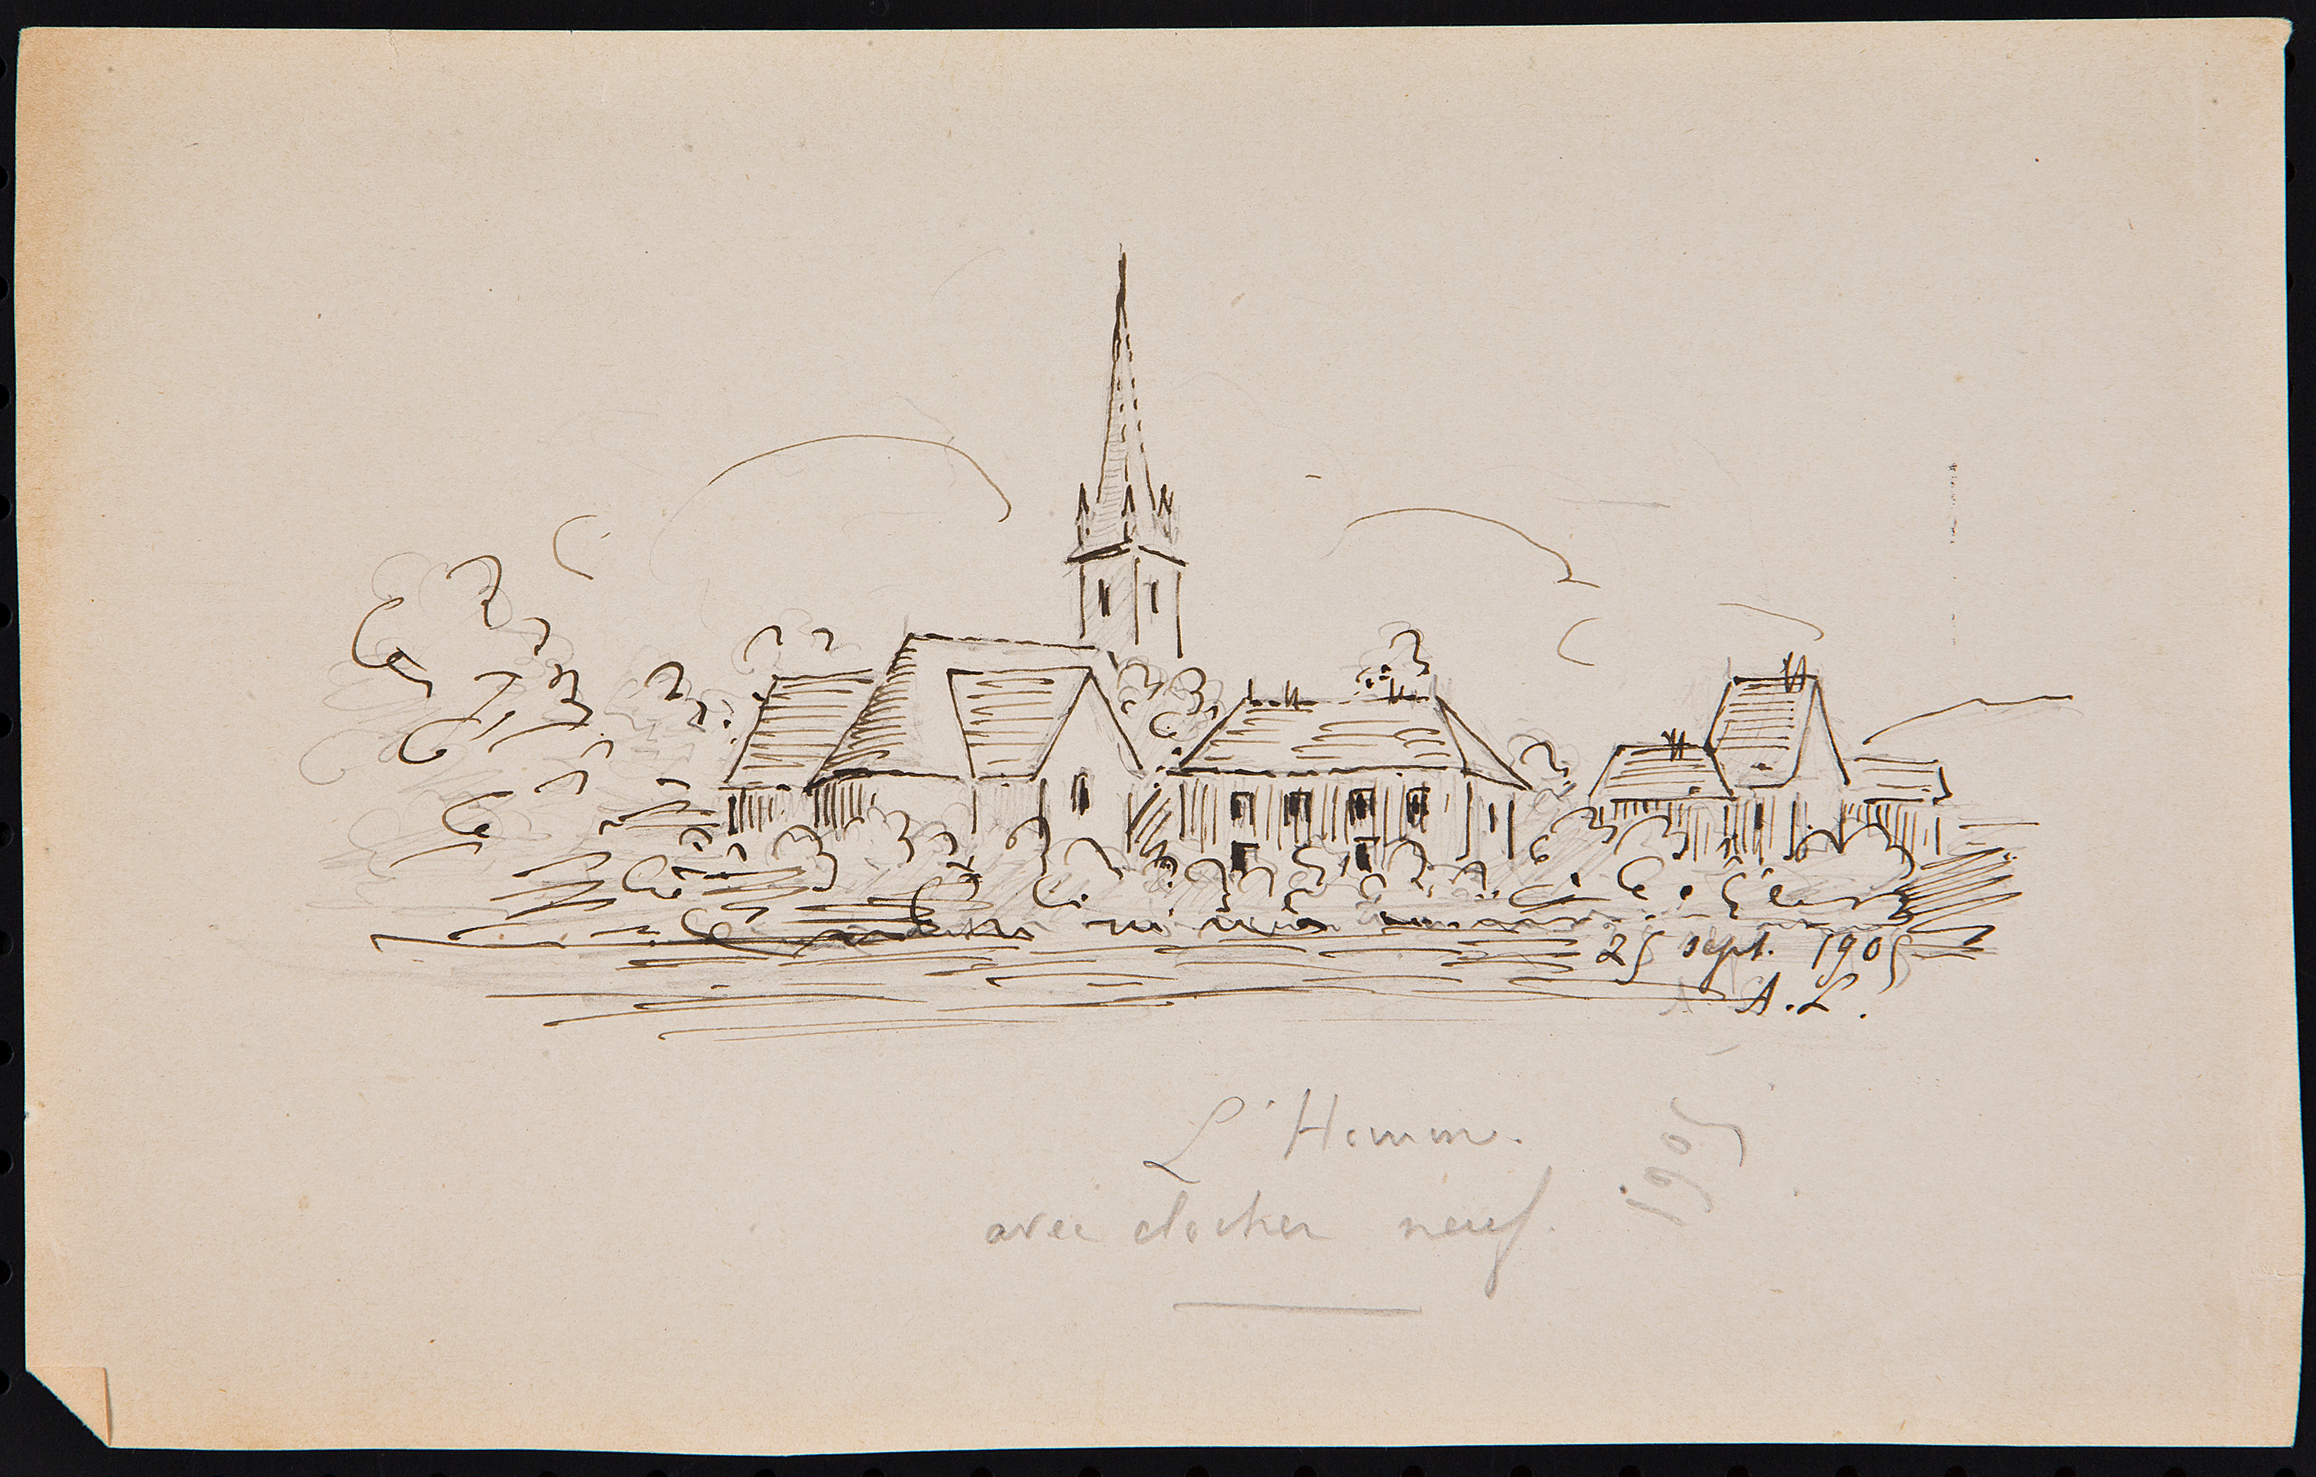 25 sept. 1905
A. L.
L'Homm.
avec clocher neuf.
1905